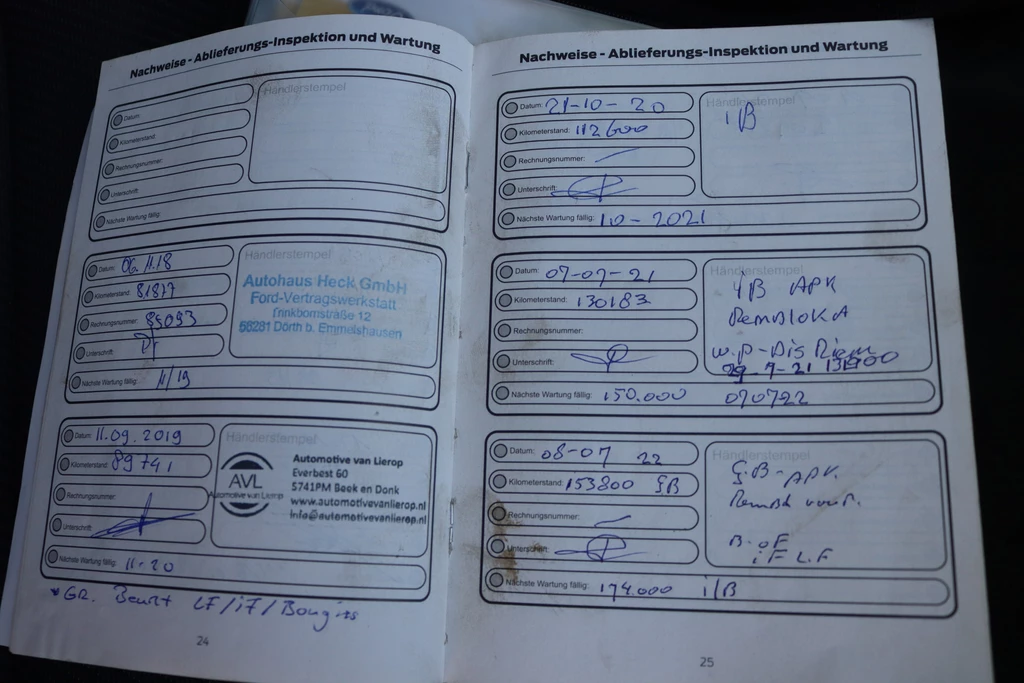 Nachweise - Ablieferungs-Inspektion und Wartung
Datum:
Kilometerstand:
Rechnungsnummer:
Unterschrift:
Nächste Wartung fällig:
Händlerstempel
Datum: 06.11.18
Kilometerstand: 81877
Rechnungsnummer: 85093
Unterschrift:
Nächste Wartung fällig: 11/19
Händlerstempel
Autohaus Heck GmbH
Ford-Vertragswerkstatt
Trinkbornstraße 12
56281 Dörth b. Emmelshausen
Datum: 11.09.2019
Kilometerstand: 89741
Rechnungsnummer:
Unterschrift:
Nächste Wartung fällig: 11-20
Händlerstempel
AVL
Automotive van Lierop
Automotive van Lierop
Everbest 60
5741PM Beek en Donk
www.automotivevanlierop.nl
info@automotivevanlierop.nl
*GR. Beurt LF/iF/Bougies
24
Nachweise - Ablieferungs-Inspektion und Wartung
Datum: 21-10-20
Kilometerstand: 112600
Rechnungsnummer: —
Unterschrift:
Nächste Wartung fällig: 10-2021
Händlerstempel
Datum: 07-07-21
Kilometerstand: 130183
Rechnungsnummer:
Unterschrift:
Nächste Wartung fällig: 150.000 070722
Händlerstempel
APK
29-7-21
Datum: 08-07 22
Kilometerstand: 153800 GB
Rechnungsnummer: —
Unterschrift:
Nächste Wartung fällig: 174.000 i/B
Händlerstempel
G.B-APK.
voor.
B.oF
iF L.F
25